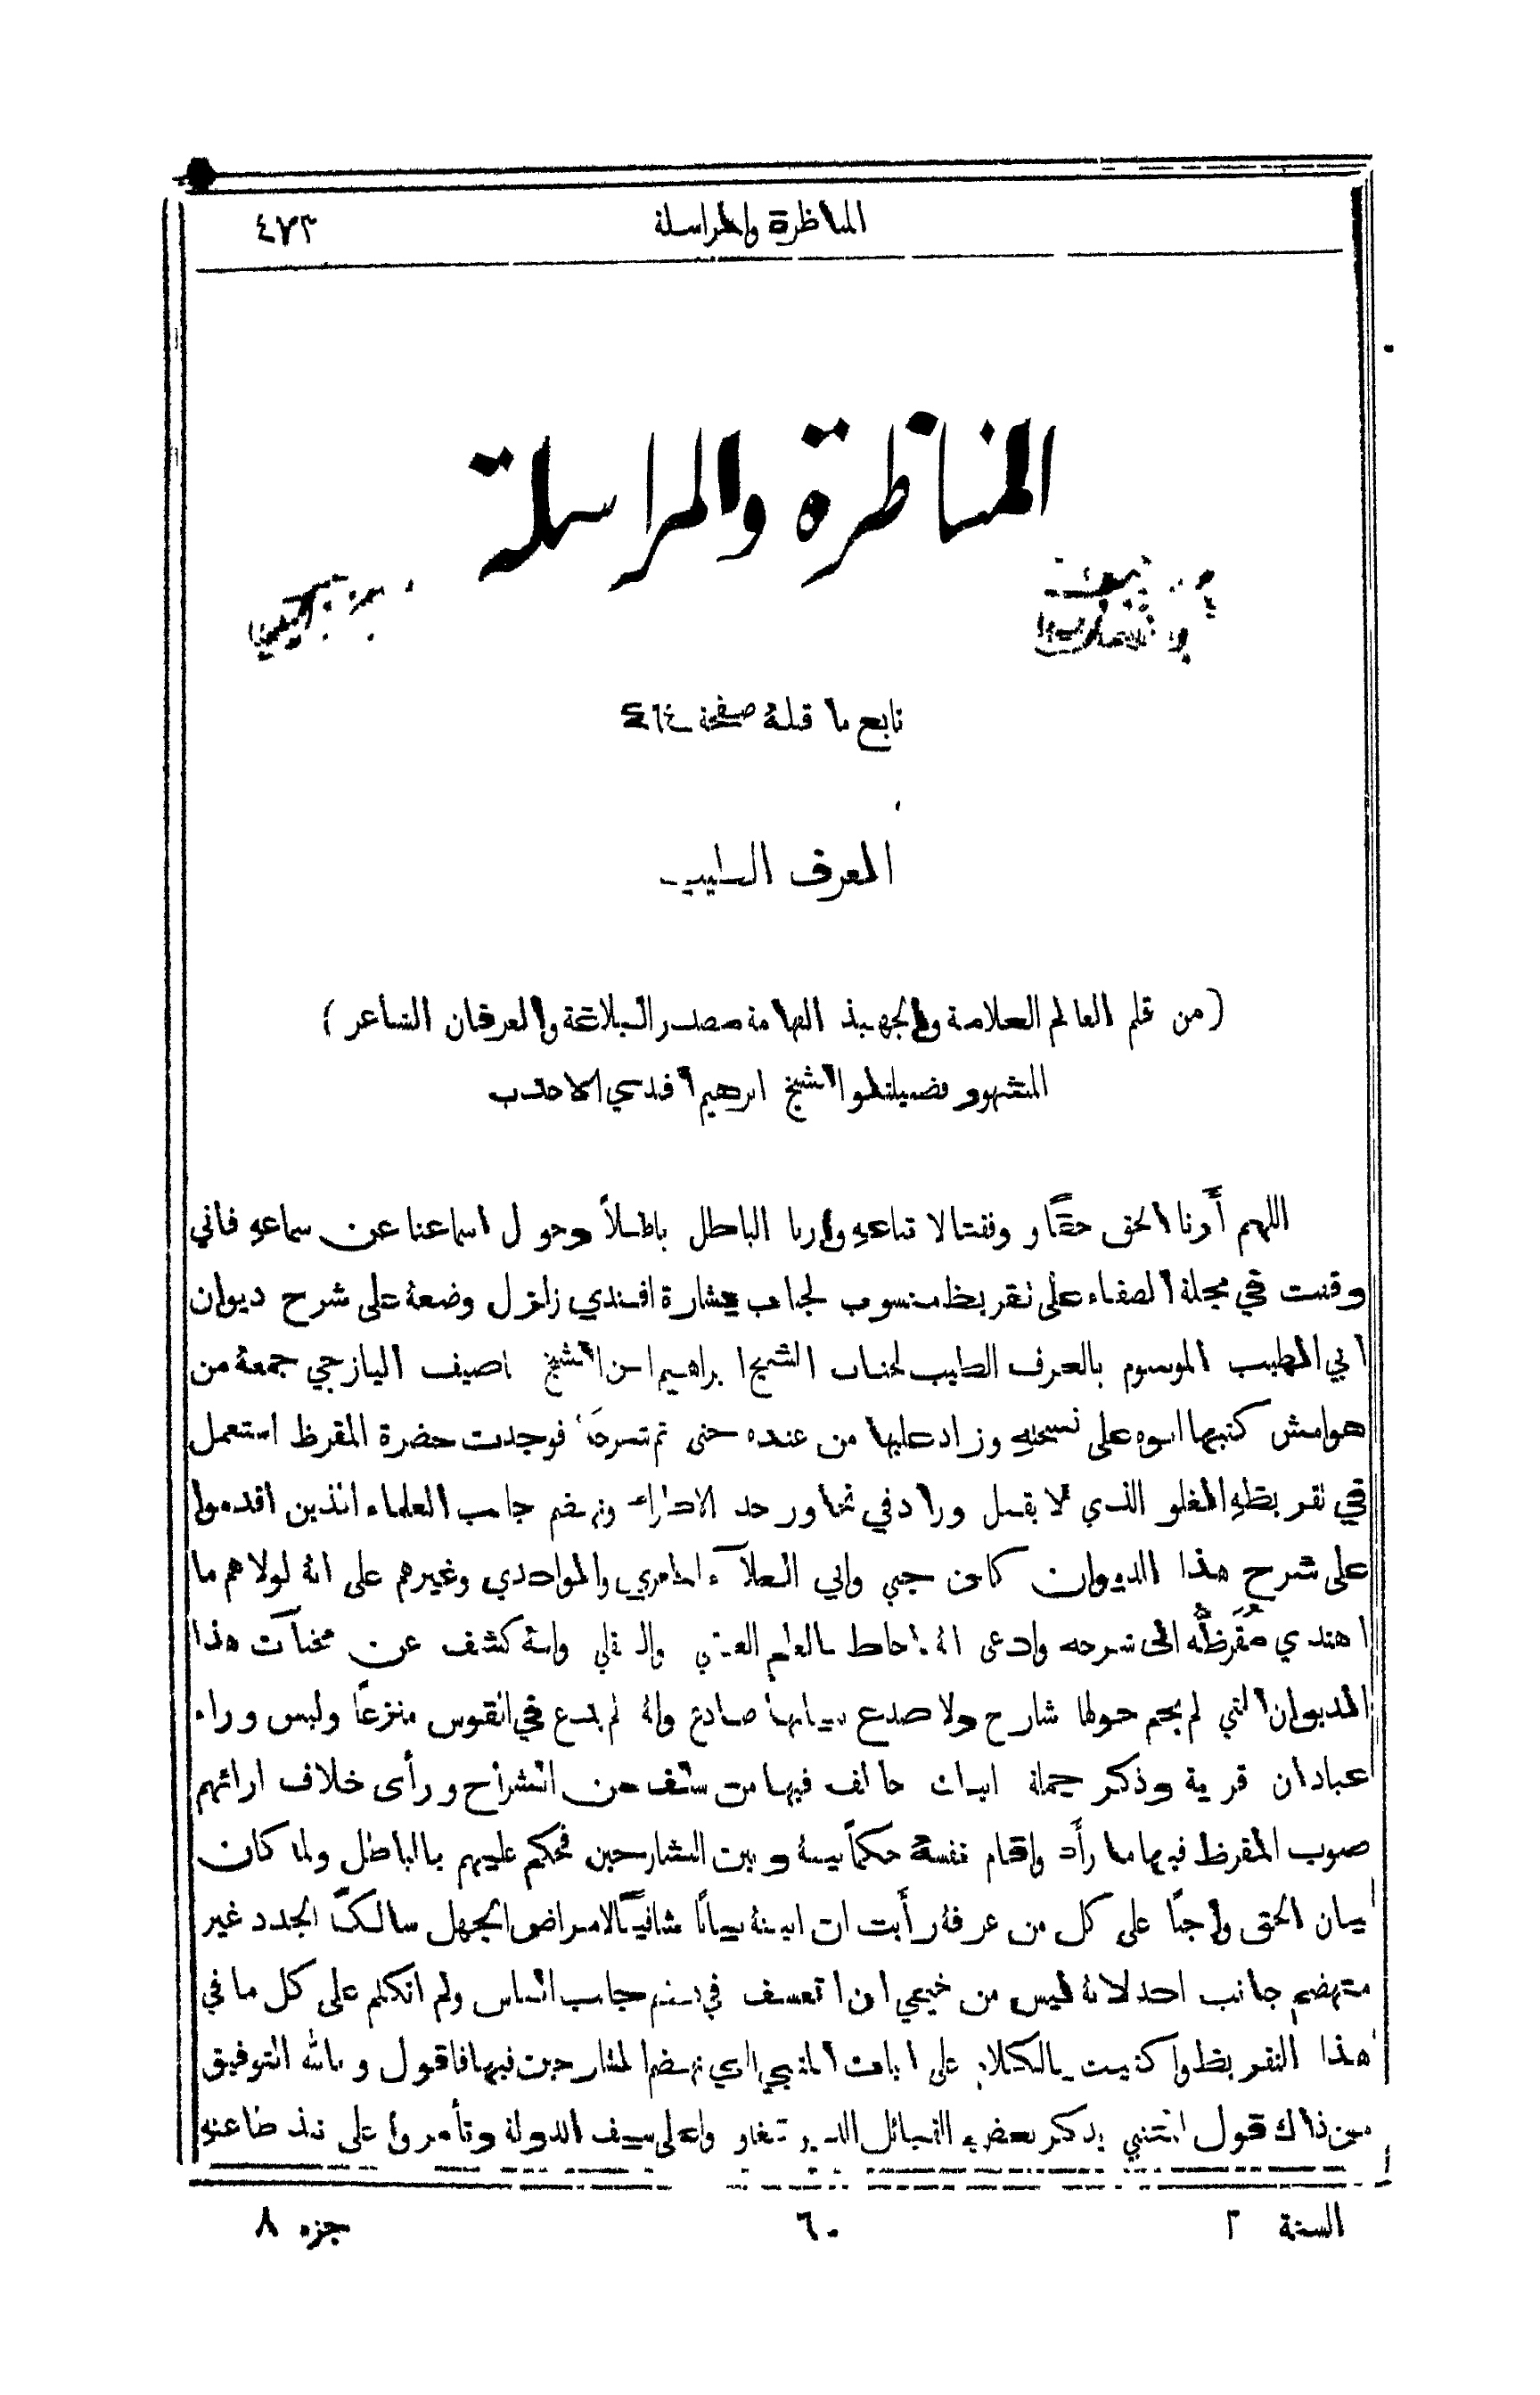 المناظرة والمراسلة ٤٧٣
المناظرة والمراسلة
تابع ما قبلهُ صفحة ٤٦٤
العرف الطيب
(من قلم العالم العلامة والجهبذ الفهامة مصدر البلاغة والعرفان الشاعر)
المشهور فضيلتلو الشيخ ابرهيم افندي الاحدب
اللهم أَرنا الحق حقًا ووفقنا لاتباعهِ وارنا الباطل باطلاً وحول اسماعنا عن سماعهِ فاني
وقفت في مجلة الصفاء على نقريظ منسوب لجناب بشارة افندي زلزل وضعهُ على شرح ديوان
ابي الطيب الموسوم بالعرف الطيب لجناب الشيخ ابراهيم ابن الشيخ ناصيف اليازجي جمعهُ من
هوامش كتبها ابوه على نسختهِ وزاد عليها من عنده حتى تم شرحًا فوجدت حضرة المقرظ استعمل
في نقريظهِ الغلو الذي لا يقبل وزاد في تجاوز حد الاطراء وتهضم جانب العلماء الذين اقدموا
على شرح هذا الديوان كابن جني وابي العلآء المعري والواحدي وغيرهم على انهُ لولاهم ما
اهتدى مُقَرظُه الى شرحه وادعى انهُ احاط بالعلم العقلي والنقلي وانهُ كشف عن مخبآت هذا
الديوان التي لم يحم حولها شارح ولا صدع ببيانها صادع وانهُ لم يدع في القوس منزعًا وليس وراء
عبادان قرية وذكر جملة ابيات خالف فيها من سلف من الشراح ورأى خلاف ارائهم
صوب المقرظ فيها ما رأَه واقام نفسهُ حكمًا بينهُ وبين الشارحين فحكم عليهم بالباطل ولما كان
بيان الحق واجبًا على كل من عرفهُ رأَيت ان ابينهُ بيانًا شافيًا لامراض الجهل سالكًا الجدد غير
متهضم جانب احد لانهُ ليس من خيمي ان اتعسف في هضم جانب الناس ولم اتكلم على كل ما في
هذا النقريظ واكتفيت بالكلام على ابيات المتنبي التي تهضم الشارحين فيها فاقول وبالله التوفيق
من ذلك قول المتنبي يذكر بعض القبائل الذين تغاووا على سيف الدولة وتأمروا على نبذ طاعتهِ
السنة ٢ ٦٠ جزء ٨